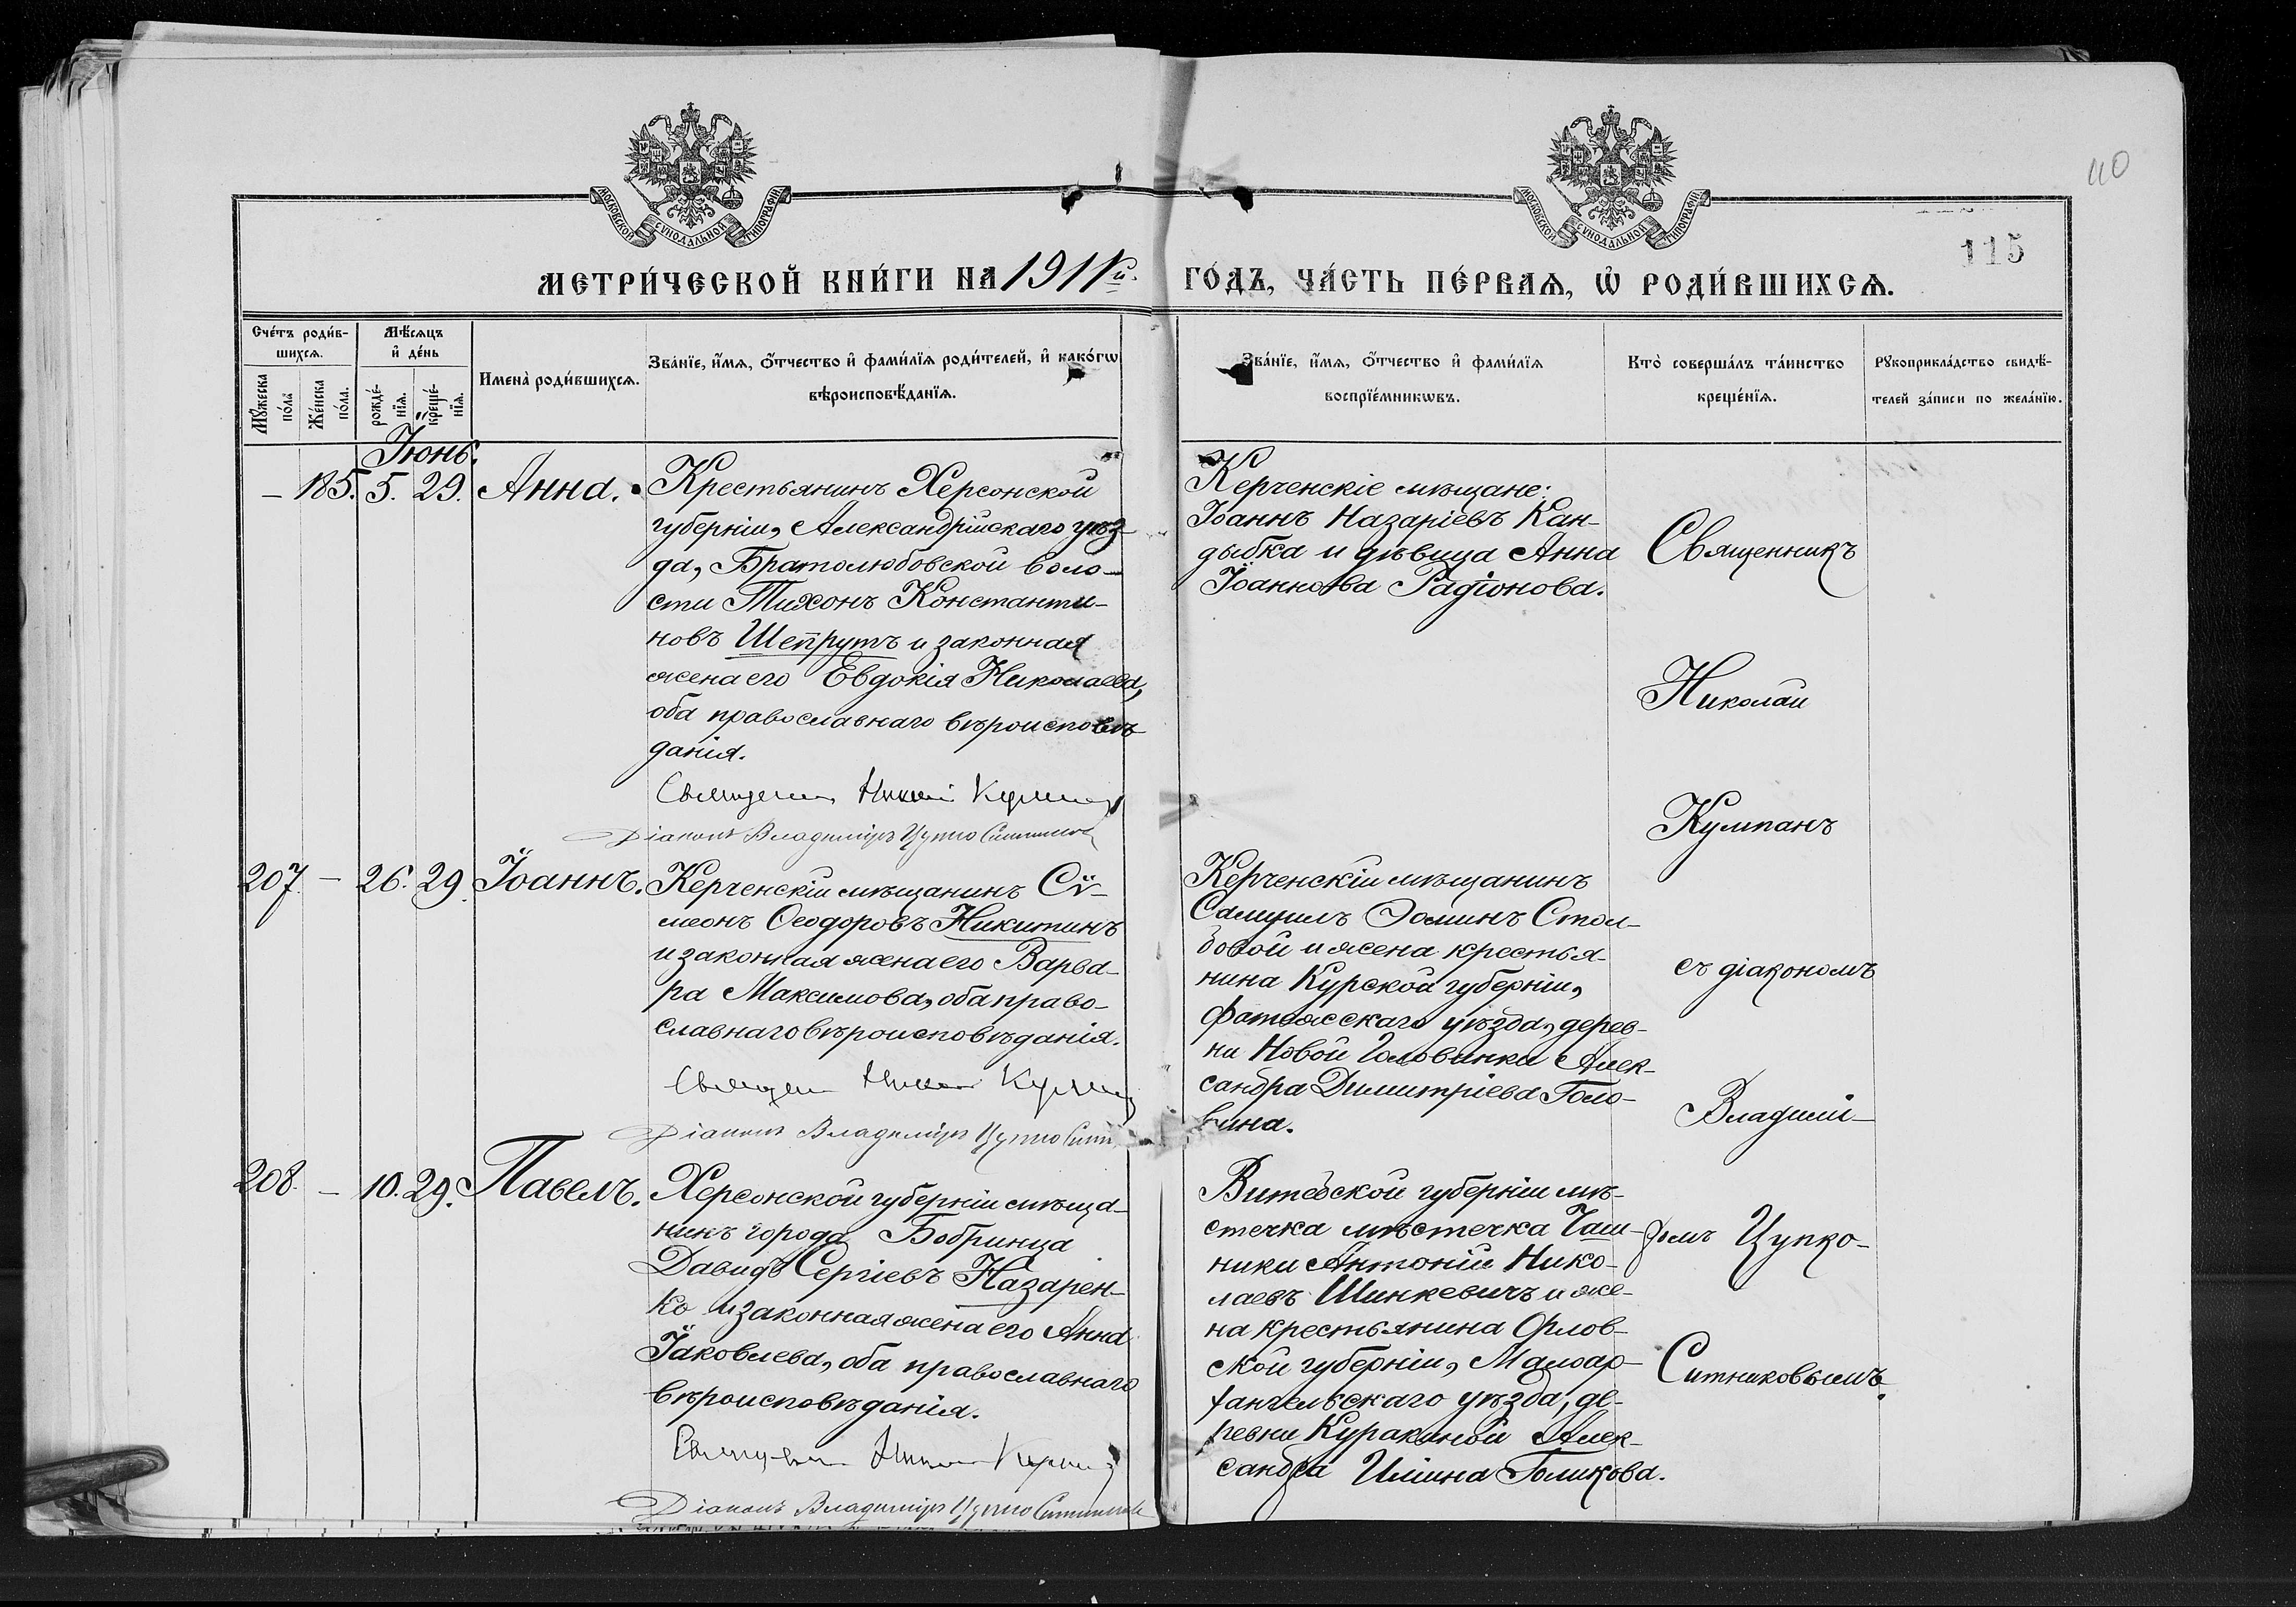 110
115
МОСКОВСКОЙ СѴНОДАЛЬНОЙ ТИПОГРАФІИ
МОСКОВСКОЙ СѴНОДАЛЬНОЙ ТИПОГРАФІИ
МЕТРИ́ЧЕСКОЙ КНИ́ГИ НА 1911й. ГО́ДЪ, ЧА́СТЬ ПЕ́РВАѦ, Ѡ҆ РОДИ́ВШИХСѦ.
Сче́тъ роди́в-
шихсѧ.
Мꙋ́жеска
по́ла
Же́нска
по́ла.
Мѣ́сѧцъ
и҆ де́нь
рожде́-
нїѧ.
креще́-
нїѧ.
Имена̀ роди́вшихсѧ.
Зва́нїе, и҆́мѧ, ѻ҆́тчество и҆ фами́лїѧ роди́телей, и҆ како́гѡ
вѣроисповѣ́данїѧ.
Зва́нїе, и҆́мѧ, ѻ҆́тчество и҆ фами́лїѧ
воспрїе́мникѡвъ.
Кто̀ соверша́лъ та́инство
креще́нїѧ.
Рꙋкоприкла́дство свидѣ́-
телей за́писи по жела́нїю.
Іюнь.
— 185. 5. 29. Анна.
Крестьянинъ Херсонской
губерніи, Александрійскаго уѣз-
да, Братолюбовской воло-
сти Тихонъ Константи-
новъ Шепрутъ и законная
жена его Евдокія Николаева,
оба православнаго вѣроисповѣ-
данія.
Священникъ Николай Кумпанъ
Діаконъ Владиміръ Цупко Ситников
Керченскіе мѣщане:
Іоаннъ Назаріевъ Кан-
дыбка и дѣвица Анна
Іоаннова Радіонова.
Священникъ
Николай
Кумпанъ
съ діакономъ
Владимі-
ромъ Цупко-
Ситниковымъ.
207. — 26. 29. Іоаннъ.
Керченскій мѣщанинъ Сѵ-
меонъ Ѳеодоровъ Никитинъ
и законная жена его Варва-
ра Максимова, оба право-
славнаго вѣроисповѣданія.
Священ Николай Кумпанъ
Діаконъ Владиміръ Цупко Ситн
Керченскій мѣщанинъ
Самуилъ Ѳоминъ Стол-
бовой и жена крестья-
нина Курской губерніи,
Фатежскаго уѣзда, дерев-
ни Новой Головинки Алек-
сандра Димитріева Голо-
вина.
208. — 10. 29. Павелъ.
Херсонской губерніи мѣща-
нинъ города Бобринца
Давидъ Сергіевъ Назарен-
ко и законная жена его Анна
Іаковлева, оба православнаго
вѣроисповѣданія.
Священникъ Николай Кумпанъ
Діаконъ Владиміръ Цупко Ситников
Витебской губерніи мѣ-
стечка мѣстечка Чаш-
ники Антоній Нико-
лаевъ Шинкевичъ и же-
на крестьянина Орлов-
ской губерніи, Малоар-
хангельскаго уѣзда, де-
ревни Куракиной Алек-
сандра Ильина Голикова.